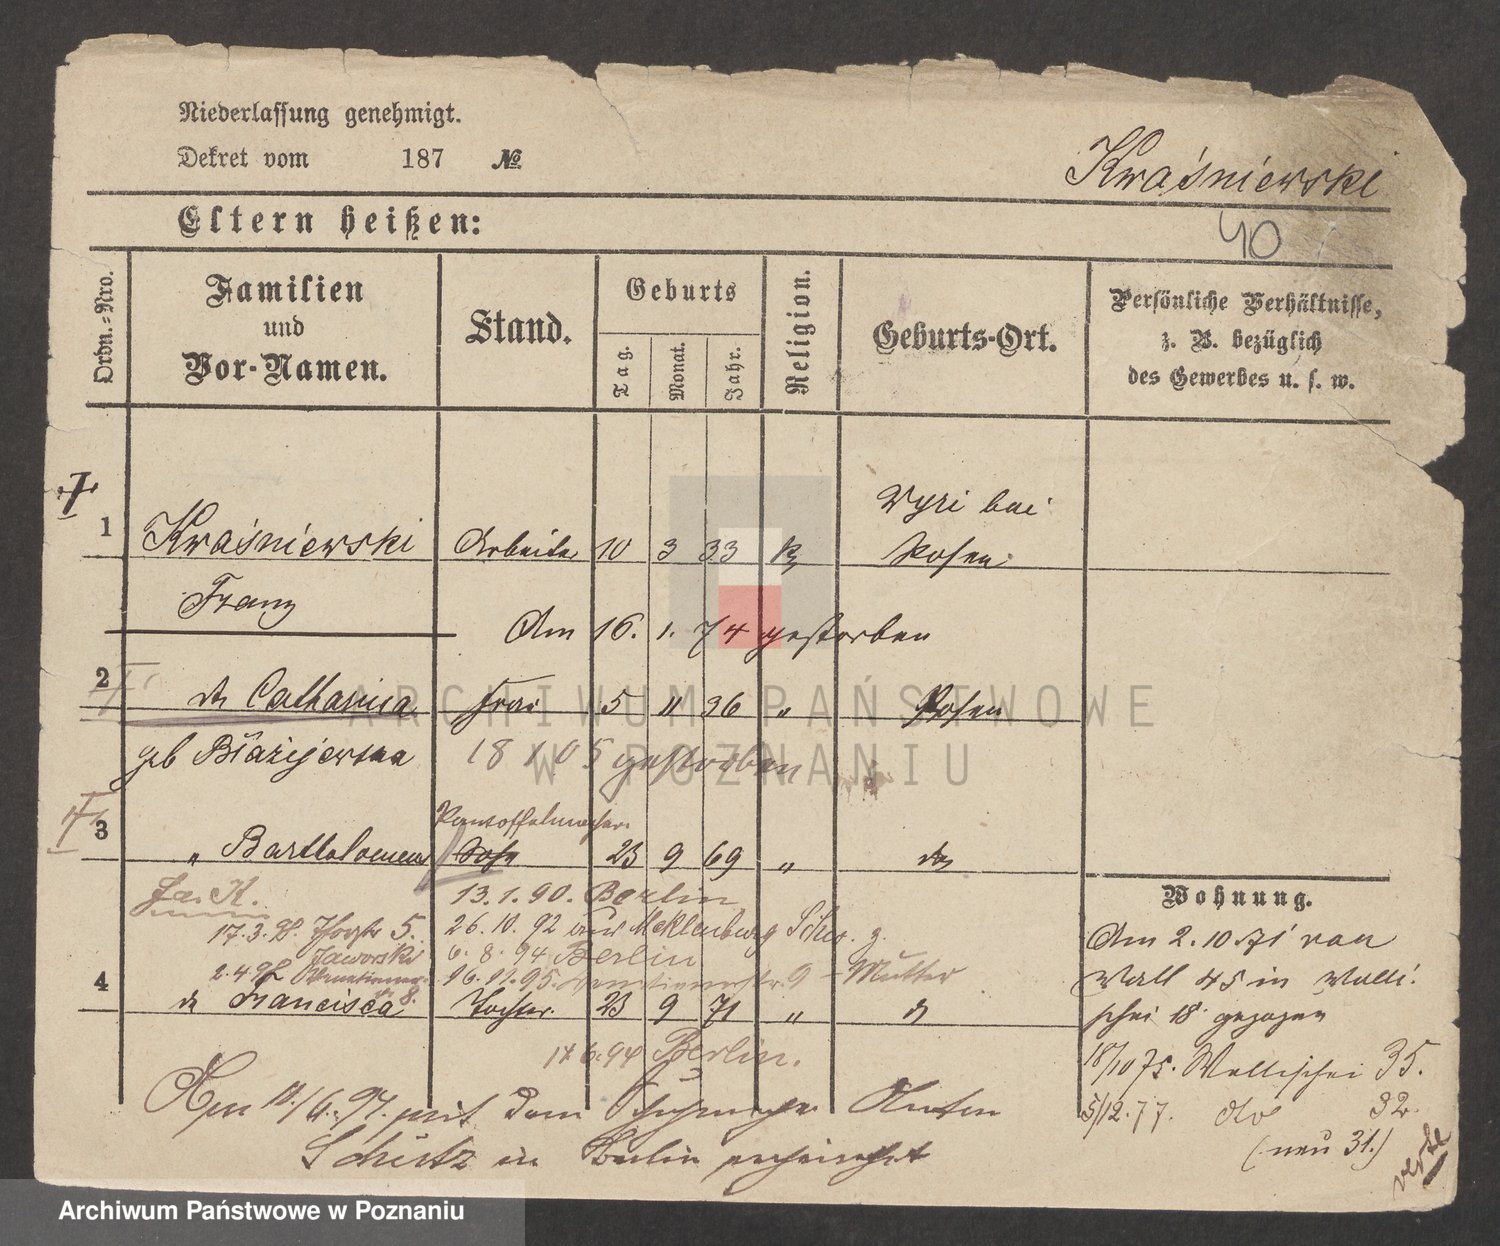 Niederlassung genehmigt.
Dekret vom 187 No
Kraśniewski
Eltern heißen:
40
Ordn.-Nro.
Familien
und
Vor-Namen.
Stand.
Geburts
Tag.
Monat.
Jahr.
Religion.
Geburts-Ort.
Persönliche Verhältnisse,
z. B. bezüglich
des Gewerbes u. s. w.
1 Kraśniewski Arbeiter 10 3 33 k Wyri bei
Posen
Franz
Am 16. 1. 74 gestorben
2 Catharina Frau 5 11 36 " Posen
geb Błażejewska 18 1 05 gestorben
Pantoffelmacher
3 " Bartholomeus Sohn 23 9 69 "
13.1.90. Berlin
17.3. 5. 26.10.92 aus Mecklenburg
Jaworski 6.8.94 Berlin
2.4. 8. 16.11.95. 9 - Mutter
4 Francisca Tochter 23 9 71 "
6.94 Berlin.
mit dem Anton
Schütz in Berlin verheirathet
Wohnung.
Am 2.10 71 von
Wall 45 in Walli-
schei 18 gezogen
18/10 75. Wallischei 35.
5/12.77. dto 32.
(neu 31.)
ARCHIWUM PAŃSTWOWE
W POZNANIU
Archiwum Państwowe w Poznaniu